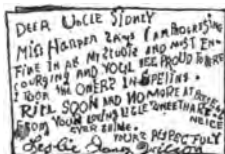 DEAR UNCLE SIDNEY
MISS HARPER SAYS I AM PROGRESSING
FINE IN AR MITTUDE AND MOST EN-
COURGING AND YOULL BEE PROUD TO HERE
I TOOK THE ONERZ IN SPELING.
RITE SOON AND NO MORE AT
FROM YOUR LOVING
EVER SHINE. NEICE
YOURZ RESPECFULY
Leslie